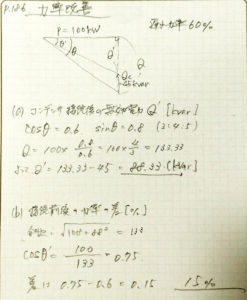 P.186 力率改善
P=100kW
遅れ力率60%
θ' θ
Q'
Q
Qc
45kvar
(a) コンデンサ接続後の無効電力Q' [kvar]
cosθ=0.6 sinθ=0.8 (3:4:5)
Q=100×0.8/0.6=100×4/3=133.33
よってQ'=133.33-45=88.33(kvar)
(b) 接続前後の力率の差[%]
√100²+88²=133
cosθ'=100/133=0.75
差は 0.75-0.6=0.15 15%